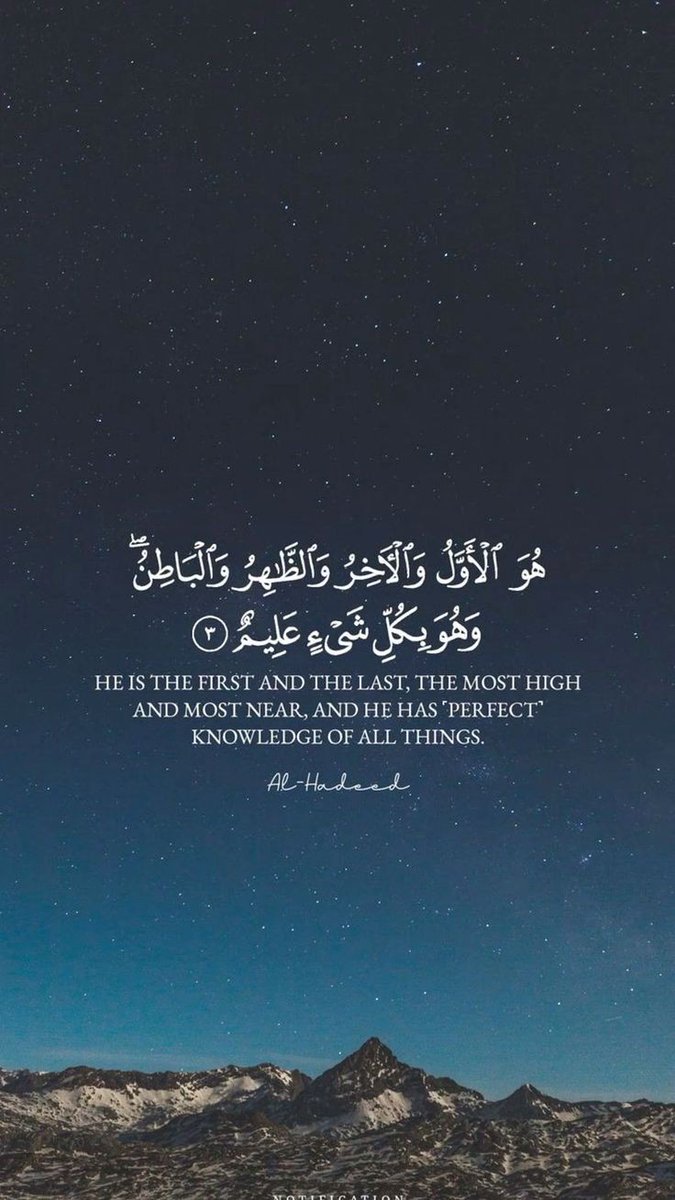 هُوَ ٱلْأَوَّلُ وَٱلْـَٔاخِرُ وَٱلظَّـٰهِرُ وَٱلْبَاطِنُ ۖ
وَهُوَ بِكُلِّ شَىْءٍ عَلِيمٌ ٣
HE IS THE FIRST AND THE LAST, THE MOST HIGH
AND MOST NEAR, AND HE HAS ˹PERFECT˺
KNOWLEDGE OF ALL THINGS.
Al-Hadeed
NOTIFICATION